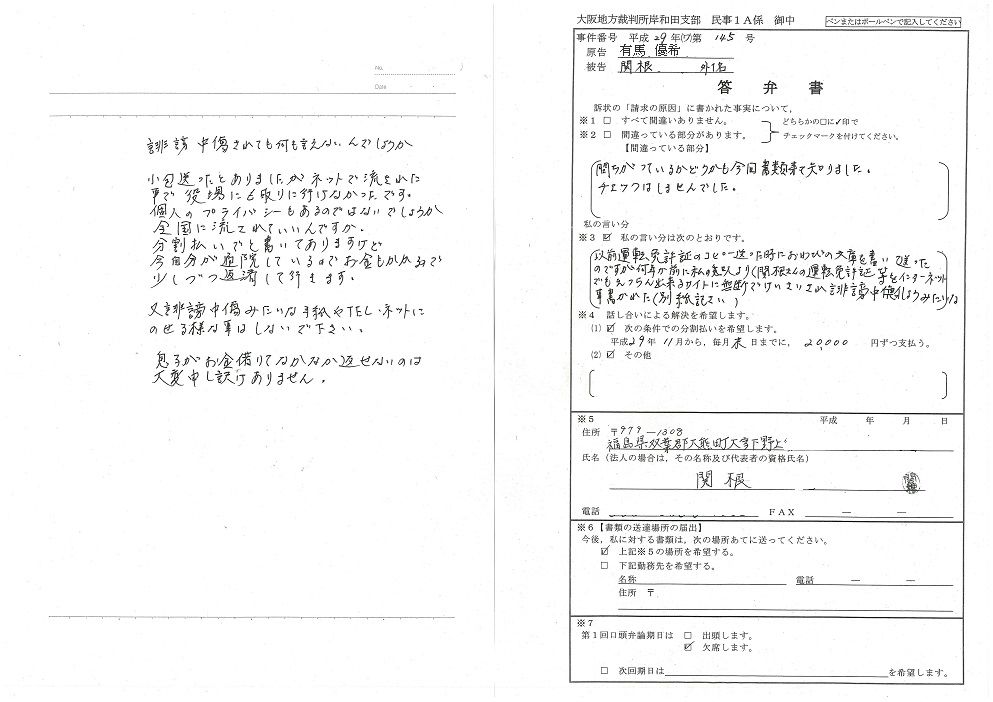 No.
Date
誹謗中傷されても何も言えないんでしょうか
小包送ったとありましたがネットで流された
事で役場にも取りに行けなかったです。
個人のプライバシーもあるのではないでしょうか
全国に流されていいんですか。
分割払いでと書いてありますけど
今自分が通院しているのでお金もかかるので
少しづつ返済して行きます。
又誹謗中傷みたいな手紙やTEL・ネットに
のせる様な事はしないで下さい。
息子がお金借りてなかなか返せないのは
大変申し訳けありません。
大阪地方裁判所岸和田支部 民事1A係 御中
ペンまたはボールペンで記入してください
事件番号 平成29年(ワ)第145号
原告 有馬 優希
被告 関根 外1名
答弁書
訴状の「請求の原因」に書かれた事実について,
※1 □ すべて間違いありません。
※2 □ 間違っている部分があります。
どちらかの□に✓印で
チェックマークを付けてください。
【間違っている部分】
間ちがっているかどうかも今回書類来て知りました。
チェックはしませんでした。
私の言い分
※3 ☑ 私の言い分は次のとおりです。
以前運転免許証のコピー送った時におわびの文庫を書いて送った
のですが何年か前に私の友人より(関根さんの運転免許証等をインターネット
でもえつらん出来るサイトに無断でけいさいされ誹謗中傷みたいな
事書かれた(別紙記さい)
※4 話し合いによる解決を希望します。
(1) ☑ 次の条件での分割払いを希望します。
平成29年 11月から,毎月末日までに, 20,000 円ずつ支払う。
(2) ☑ その他
※5
平成 年 月 日
住所 〒979-1308
福島県双葉郡大熊町大字下野上
氏名(法人の場合は,その名称及び代表者の資格氏名)
関根
電話
FAX — —
※6【書類の送達場所の届出】
今後,私に対する書類は,次の場所あてに送ってください。
☑ 上記※5の場所を希望する。
□ 下記勤務先を希望する。
名称
電話 — —
住所 〒
※7
第1回口頭弁論期日は □ 出頭します。
☑ 欠席します。
□ 次回期日は を希望します。